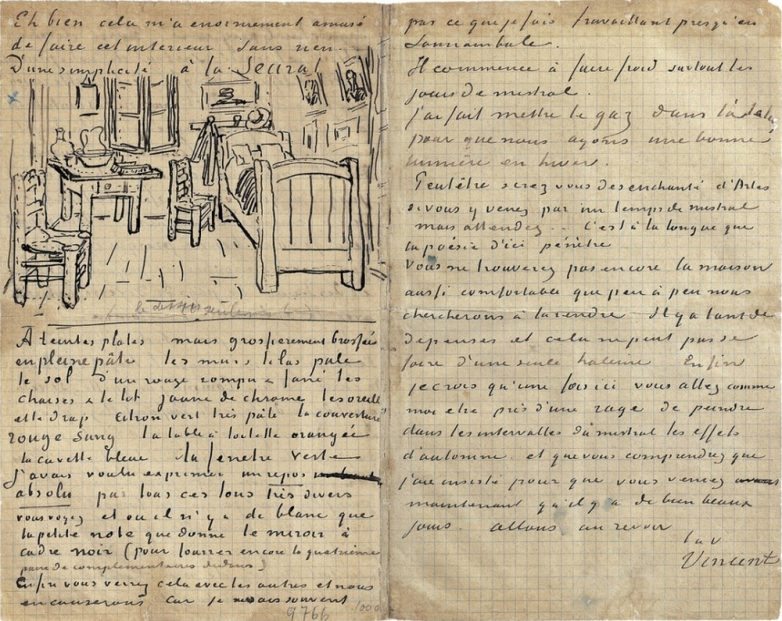 Eh bien cela m'a enormement amusé
de faire cet interieur sans rien.
D'une simplicité à la Seurat
A teintes plates mais grossierement brossées
en pleine pâte les murs lilas pale
le sol d'un rouge rompu & fané les
chaises & le lit jaune de chrome les oreillers
et le drap citron vert très pâle la couverture
rouge sang la table à toilette orangée
la cuvette bleue la fenetre verte
j'avais voulu exprimer un repos
absolu par tous ces tons très divers
vous voyez et où il n'y a de blanc que
la petite note que donne le miroir à
cadre noir (pour fourrer encore la quatrième
paire de complementaires dedans)
Enfin vous verrez cela avec les autres et nous
en causerons car je ne sais souvent
9766
pas ce que je fais travaillant presqu'en
somnambule.
Il commence à faire froid surtout les
jours de mistral.
J'ai fait mettre le gaz dans
pour que nous ayons une bonne
lumière en hiver.
Peut être serez vous desenchanté d'Arles
si vous y venez par un temps de mistral
mais attendez.. C'est à la longue que
la poésie d'ici pénètre
Vous ne trouverez pas encore la maison
aussi comfortable que peu à peu nous
chercherons à la rendre Il y a tant de
depenses et cela ne peut pas se
faire d'une seule haleine Enfin
je crois qu'une fois ici vous allez comme
moi etre pris d'une rage de peindre
dans les intervalles du mistral les effets
d'automne. et que vous comprendrez que
j'aie insisté pour que vous veniez
maintenant qu'il y a de bien beaux
jours. allons au revoir
t. à v.
Vincent